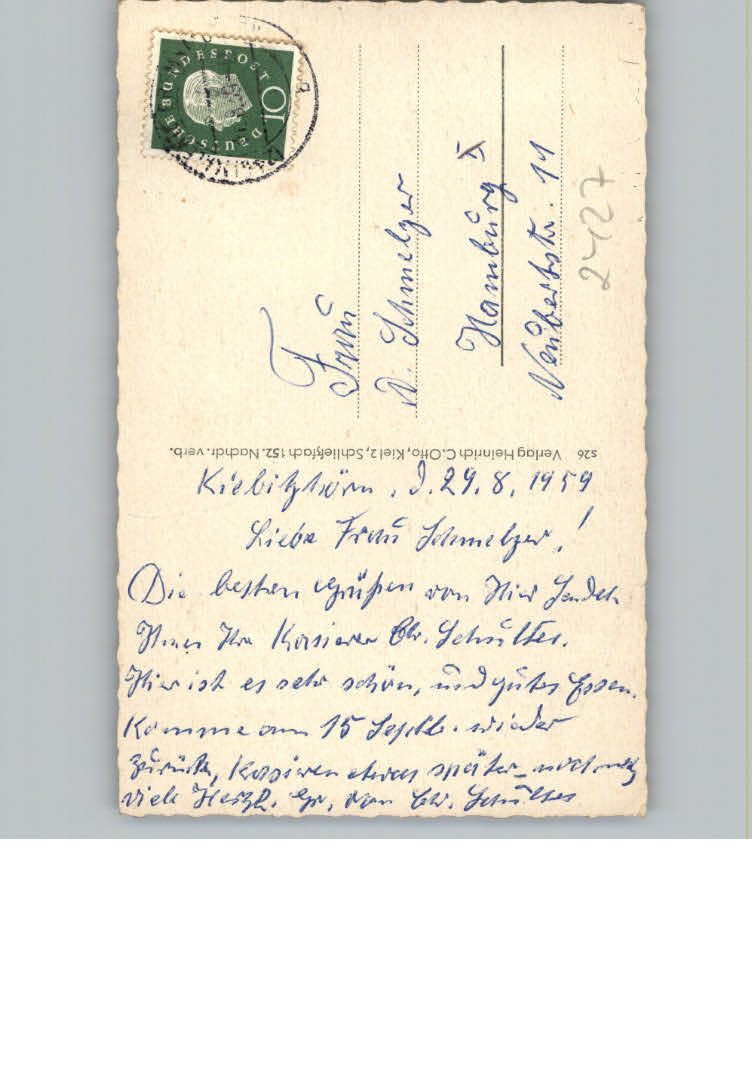 DEUTSCHE BUNDESPOST
10
Frau
A. Schmelzer
Hamburg X
Neubertstr. 11
2427
s26 Verlag Heinrich C. Otto, Kiel 2, Schließfach 152. Nachdr. verb.
Kiebitzhörn, d. 29. 8. 1959
Liebe Frau Schmelzer!
Die besten Grüßen von Hier Sendet
Ihnen Ihr Kasierer Chr. Schultes.
Hier ist es sehr schön, und gutes Essen.
Komme am 15 Septb. wieder
zurück, Kassieren etwas später nochmals
viele Herzl. Gr. von Chr. Schultes